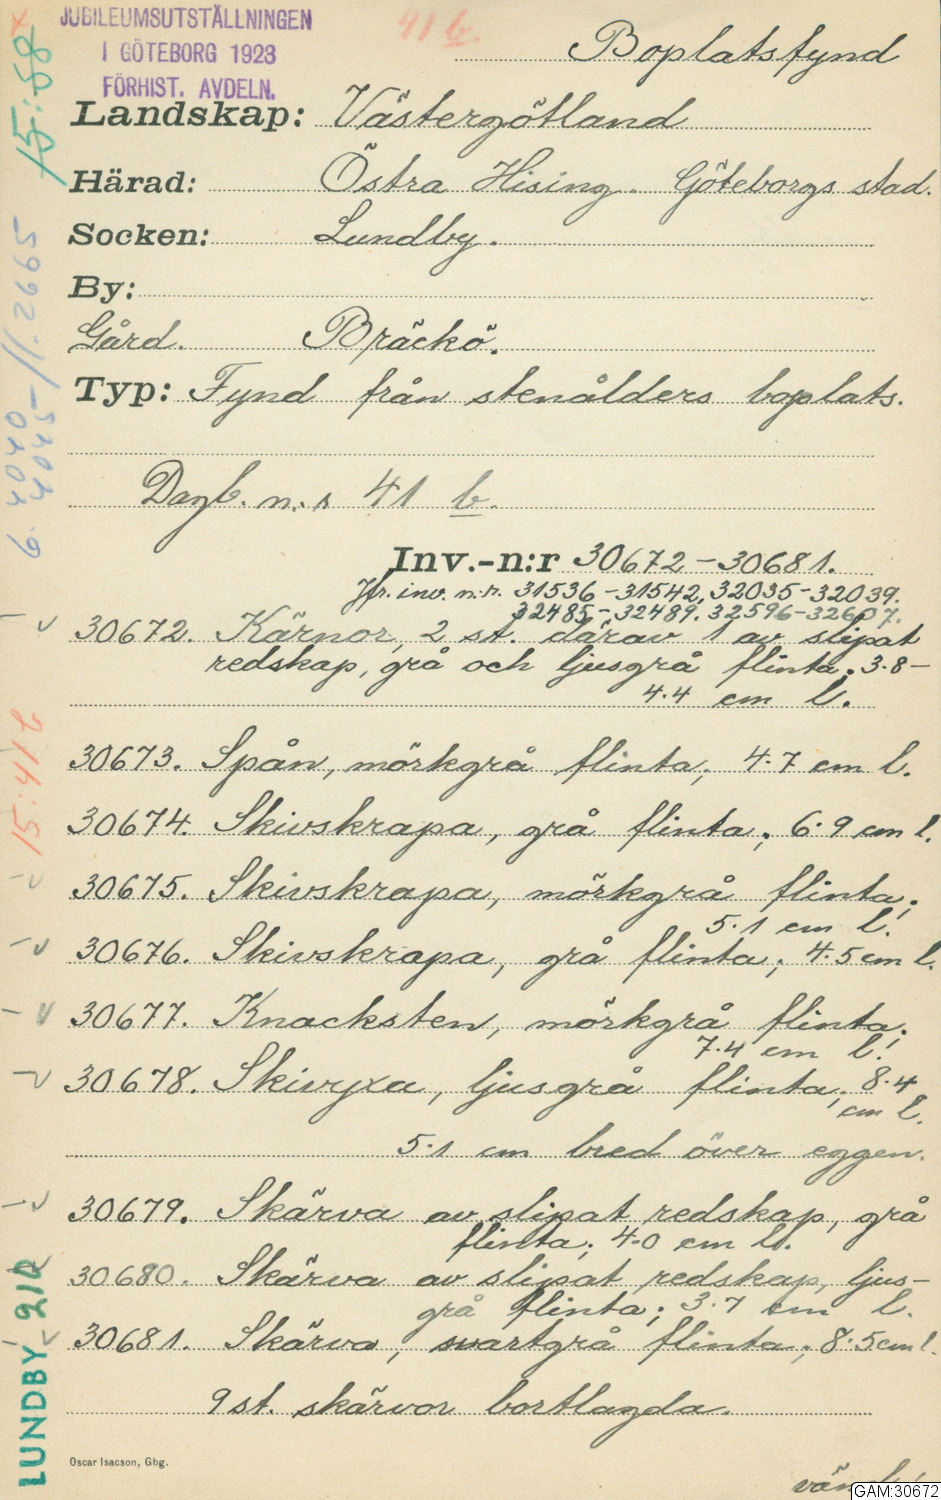 JUBILEUMSUTSTÄLLNINGEN
I GÖTEBORG 1923
FÖRHIST. AVDELN.
41 b.
Boplatsfynd
Landskap: Västergötland
Härad: Östra Hising. Göteborgs stad.
Socken: Lundby.
By:
Gård. Bräckö.
Typ: Fynd från stenålders boplats.
Dagb. n:r 41 b.
Inv.-n:r 30672–30681.
Jfr. inv. n:r. 31536–31542, 32035–32039.
32485–32489. 32596–32607.
30672. Kärnor, 2 st. därav 1 av slipat
redskap, grå och ljusgrå flinta; 3.8–
4.4 cm l.
30673. Spån, mörkgrå flinta; 4.7 cm l.
30674. Skivskrapa, grå flinta; 6.9 cm l.
30675. Skivskrapa, mörkgrå flinta;
5.1 cm l.
30676. Skivskrapa, grå flinta; 4.5 cm l.
30677. Knacksten, mörkgrå flinta;
7.4 cm l.
30678. Skivyxa, ljusgrå flinta; 8.4
cm l.
5.1 cm bred över eggen.
30679. Skärva av slipat redskap, grå
flinta; 4.0 cm l.
30680. Skärva av slipat redskap, ljus-
grå flinta; 3.7 cm l.
30681. Skärva, svartgrå flinta; 8.5 cm l.
9 st. skärvor bortlagda.
Oscar Isacson, Gbg.
vänd!
GAM:30672
15:58
15:41b
LUNDBY 210